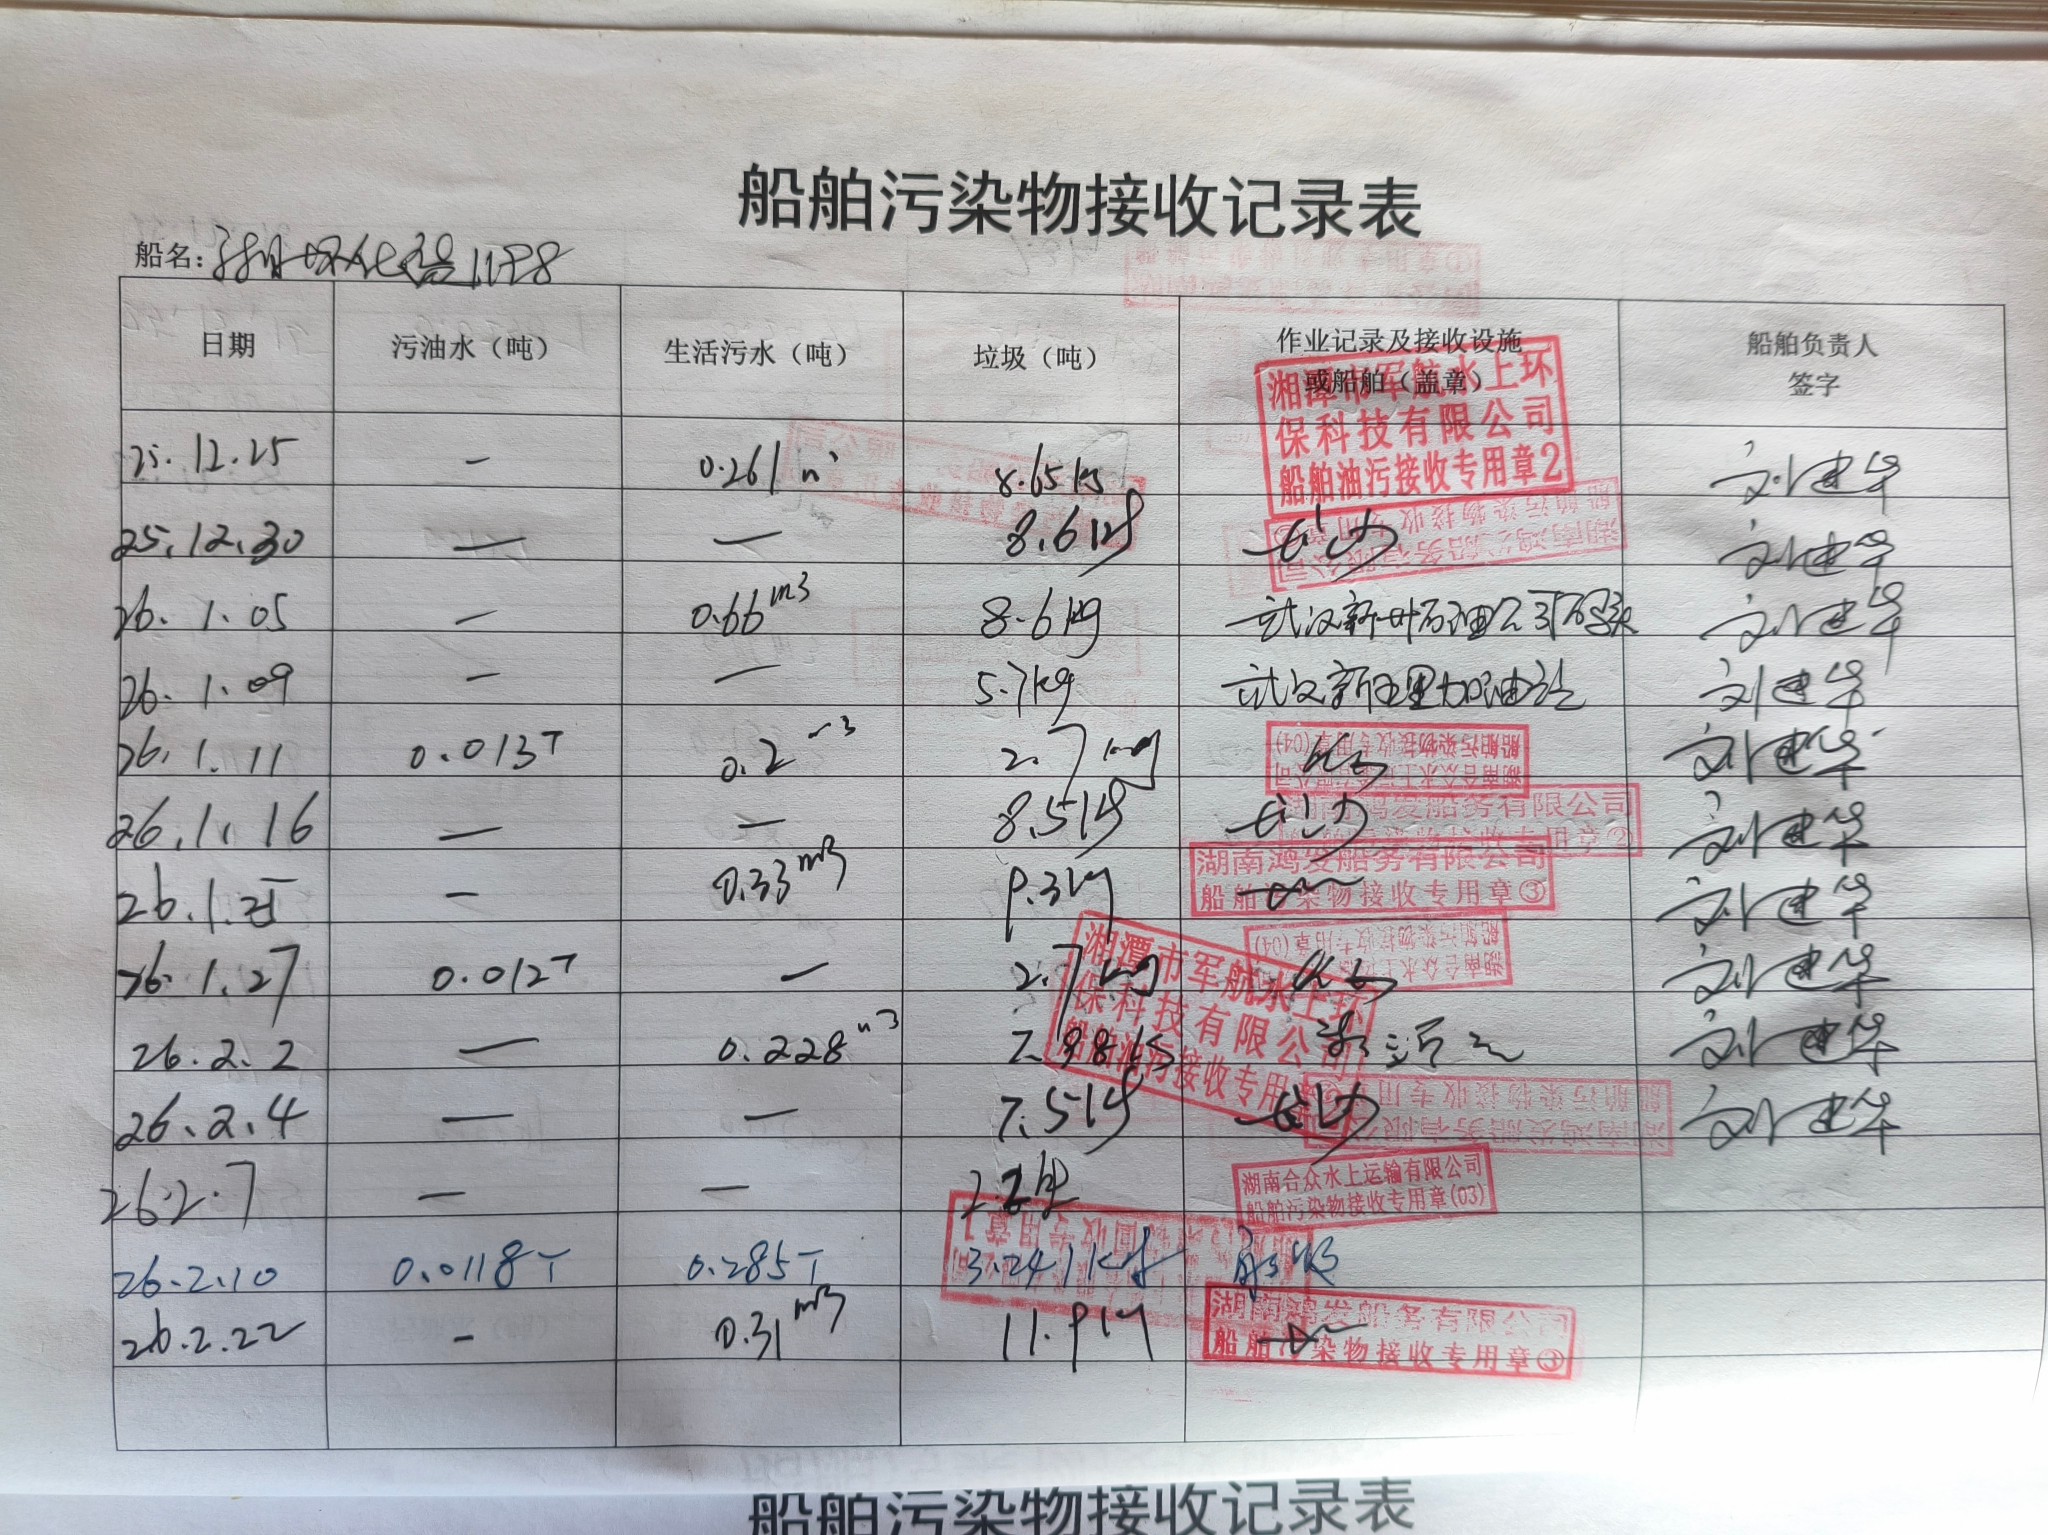 船舶污染物接收记录表
船名: 1198
日期 污油水（吨） 生活污水（吨） 垃圾（吨） 作业记录及接收设施或船舶（盖章） 船舶负责人签字
湘潭市军航水上环
保科技有限公司
船舶油污接收专用章2
25.12.25 - 0.261 8.65kg 刘建华
25.12.30 — — 8.6kg 长沙 刘建华
26.1.05 - 0.66m3 8.6kg 武汉新 刘建华
26.1.09 - — 5.7kg 武汉新 加油站 刘建华
26.1.11 0.013T 0.2m3 2.7kg 刘建华
湖南合众水上运输有限公司
船舶污染物接收专用章(04)
26.1.16 — — 8.5kg 长沙 刘建华
湖南鸿发船务有限公司
26.1. - 0.33m3 9.3kg 刘建华
湖南鸿发船务有限公司
船舶污染物接收专用章③
26.1.27 0.012T — 2.7kg 刘建华
湖南合众水上运输有限公司
船舶污染物接收专用章(04)
26.2.2 — 0.228m3 7.98kg 刘建华
湘潭市军航水上环
保科技有限公司
船舶油污接收专用章
26.2.4 — — 7.5kg 长沙 刘建华
26.2.7 — —
湖南合众水上运输有限公司
船舶污染物接收专用章(03)
26.2.10 0.0118T 0.285T 3.241kg
26.2.22 - 0.31m3 11.9kg
湖南鸿发船务有限公司
船舶污染物接收专用章③
船舶污染物接收记录表